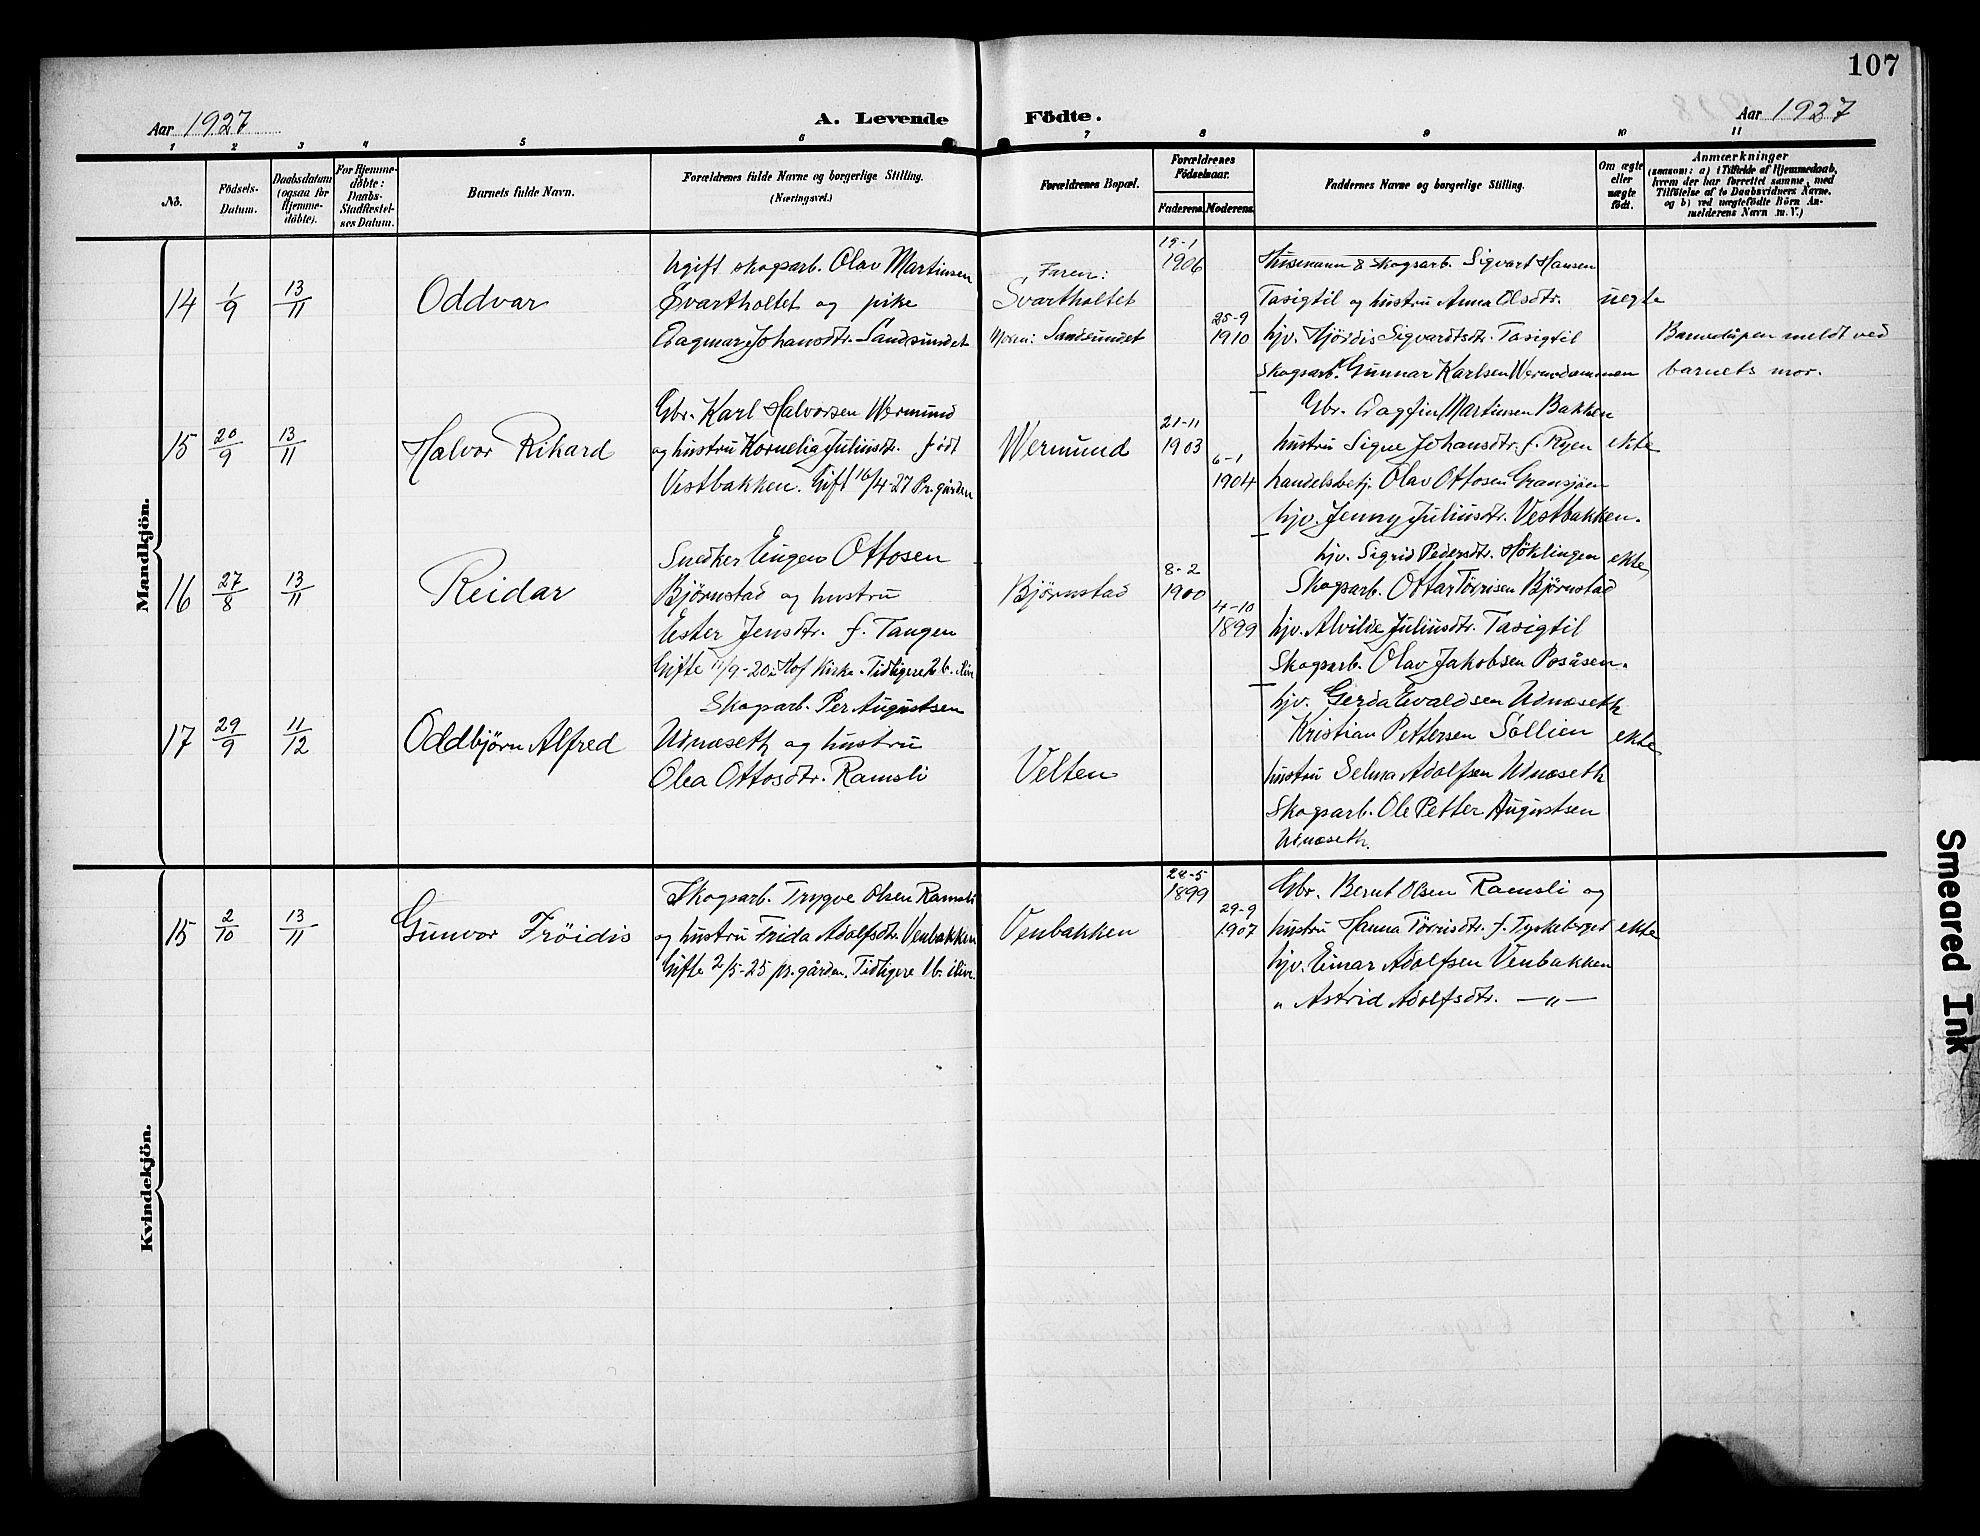 107
Aar 1927
A. Levende Födte.
Aar 1927
1 2 3 4 5 6 7 8 9 10 11
No.
Födsels-
Datum.
Daabsdatum
(ogsaa for
Hjemme-
döbte).
For Hjemme-
döbte:
Daabs-
Stadfæstel-
ses Datum.
Barnets fulde Navn.
Forældrenes fulde Navne og borgerlige Stilling.
(Næringsvei.)
Forældrenes Bopæl.
Forældrenes
Födselsaar.
Faderens. Moderens.
Faddernes Navne og borgerlige Stilling.
Om ægte
eller
uægte
födt.
Anmærkninger
(saasom: a) i Tilfælde af Hjemmedaab,
hvem der har forrettet samme, med
Tilföielse af to Daabsvidners Navne,
og b) ved uægtefödte Börn An-
melderens Navn m. V.)
Mandkjön.
14
1/9
13/11
Oddvar
Ugift skogsarb. Olav Martinsen
Svartholtet og pike
Dagmar Johansdtr. Sandsundet
Faren:
Svartholtet
Moren: Sandsundet
19-1
1906
25-9
1910
Husmann & skogsarb. Sigvart Hansen
Tasigtil og hustru Anna Olsdtr.
hjv. Hjørdis Sigvardtsdtr. Tasigtil
Skogsarb. Gunnar Karlsen Wermdammen
uegte
Barnedåpen meldt ved
barnets mor.
15
20/9
13/11
Halvor Rikard
Gbr. Karl Halvorsen Wermund
og hustru Kornelia Juliusdtr. født
Vestbakken. Gift 16/4-27 Pr.gården
Wermund
21-11
1903
6-1
1904
Gbr. Dagfin Martinsen Bakken
hustru Signe Johansdtr. f. Ryen
handelsbetj. Olav Ottosen Gransjøen
hjv. Jenny Juliusdtr. Vestbakken.
ekte
16
27/8
13/11
Reidar
Snedker Eugen Ottosen
Bjørnstad og hustru
Ester Jensdtr. f. Tangen
Gifte 11/9-20 i Hof kirke. Tidligere 2 b. ilive
Bjørnstad
8-2
1900
4-10
1899
hjv. Sigrid Pedersdtr. Höklingen
Skogsarb. Ottar Tørrisen Bjørnstad
hjv. Alvilde Juliusdtr. Tasigtil
Skogsarb. Olav Jakobsen Posåsen.
ekte
17
29/9
11/12
Oddbjørn Alfred
Skogsarb. Per Augustsen
Utnæseth og hustru
Olea Ottosdtr. Ramsli
Velten
hjv. Gerda Evaldsen Utnæseth
Kristian Pettersen Søllien
hustru Selma Adolfsen Utnæseth
Skogsarb. Ole Petter Augustsen
Utnæseth.
ekte
Kvindekjön.
15
2/10
13/11
Gunvor Fröidis
Skogsarb. Trygve Olsen Ramsli
og hustru Frida Adolfsdtr. Venbakken
Gifte 2/5-25 pr.gården. Tidligere 1 b. ilive.
Venbakken
24-5
1899
29-9
1907
Gbr. Bernt Olsen Ramsli og
hustru Hanna Tørrisdtr. f. Tyskeberget
hjv. Einar Adolfsen Venbakken
„ Astrid Adolfsdtr. —„—
ekte
Smeared Ink